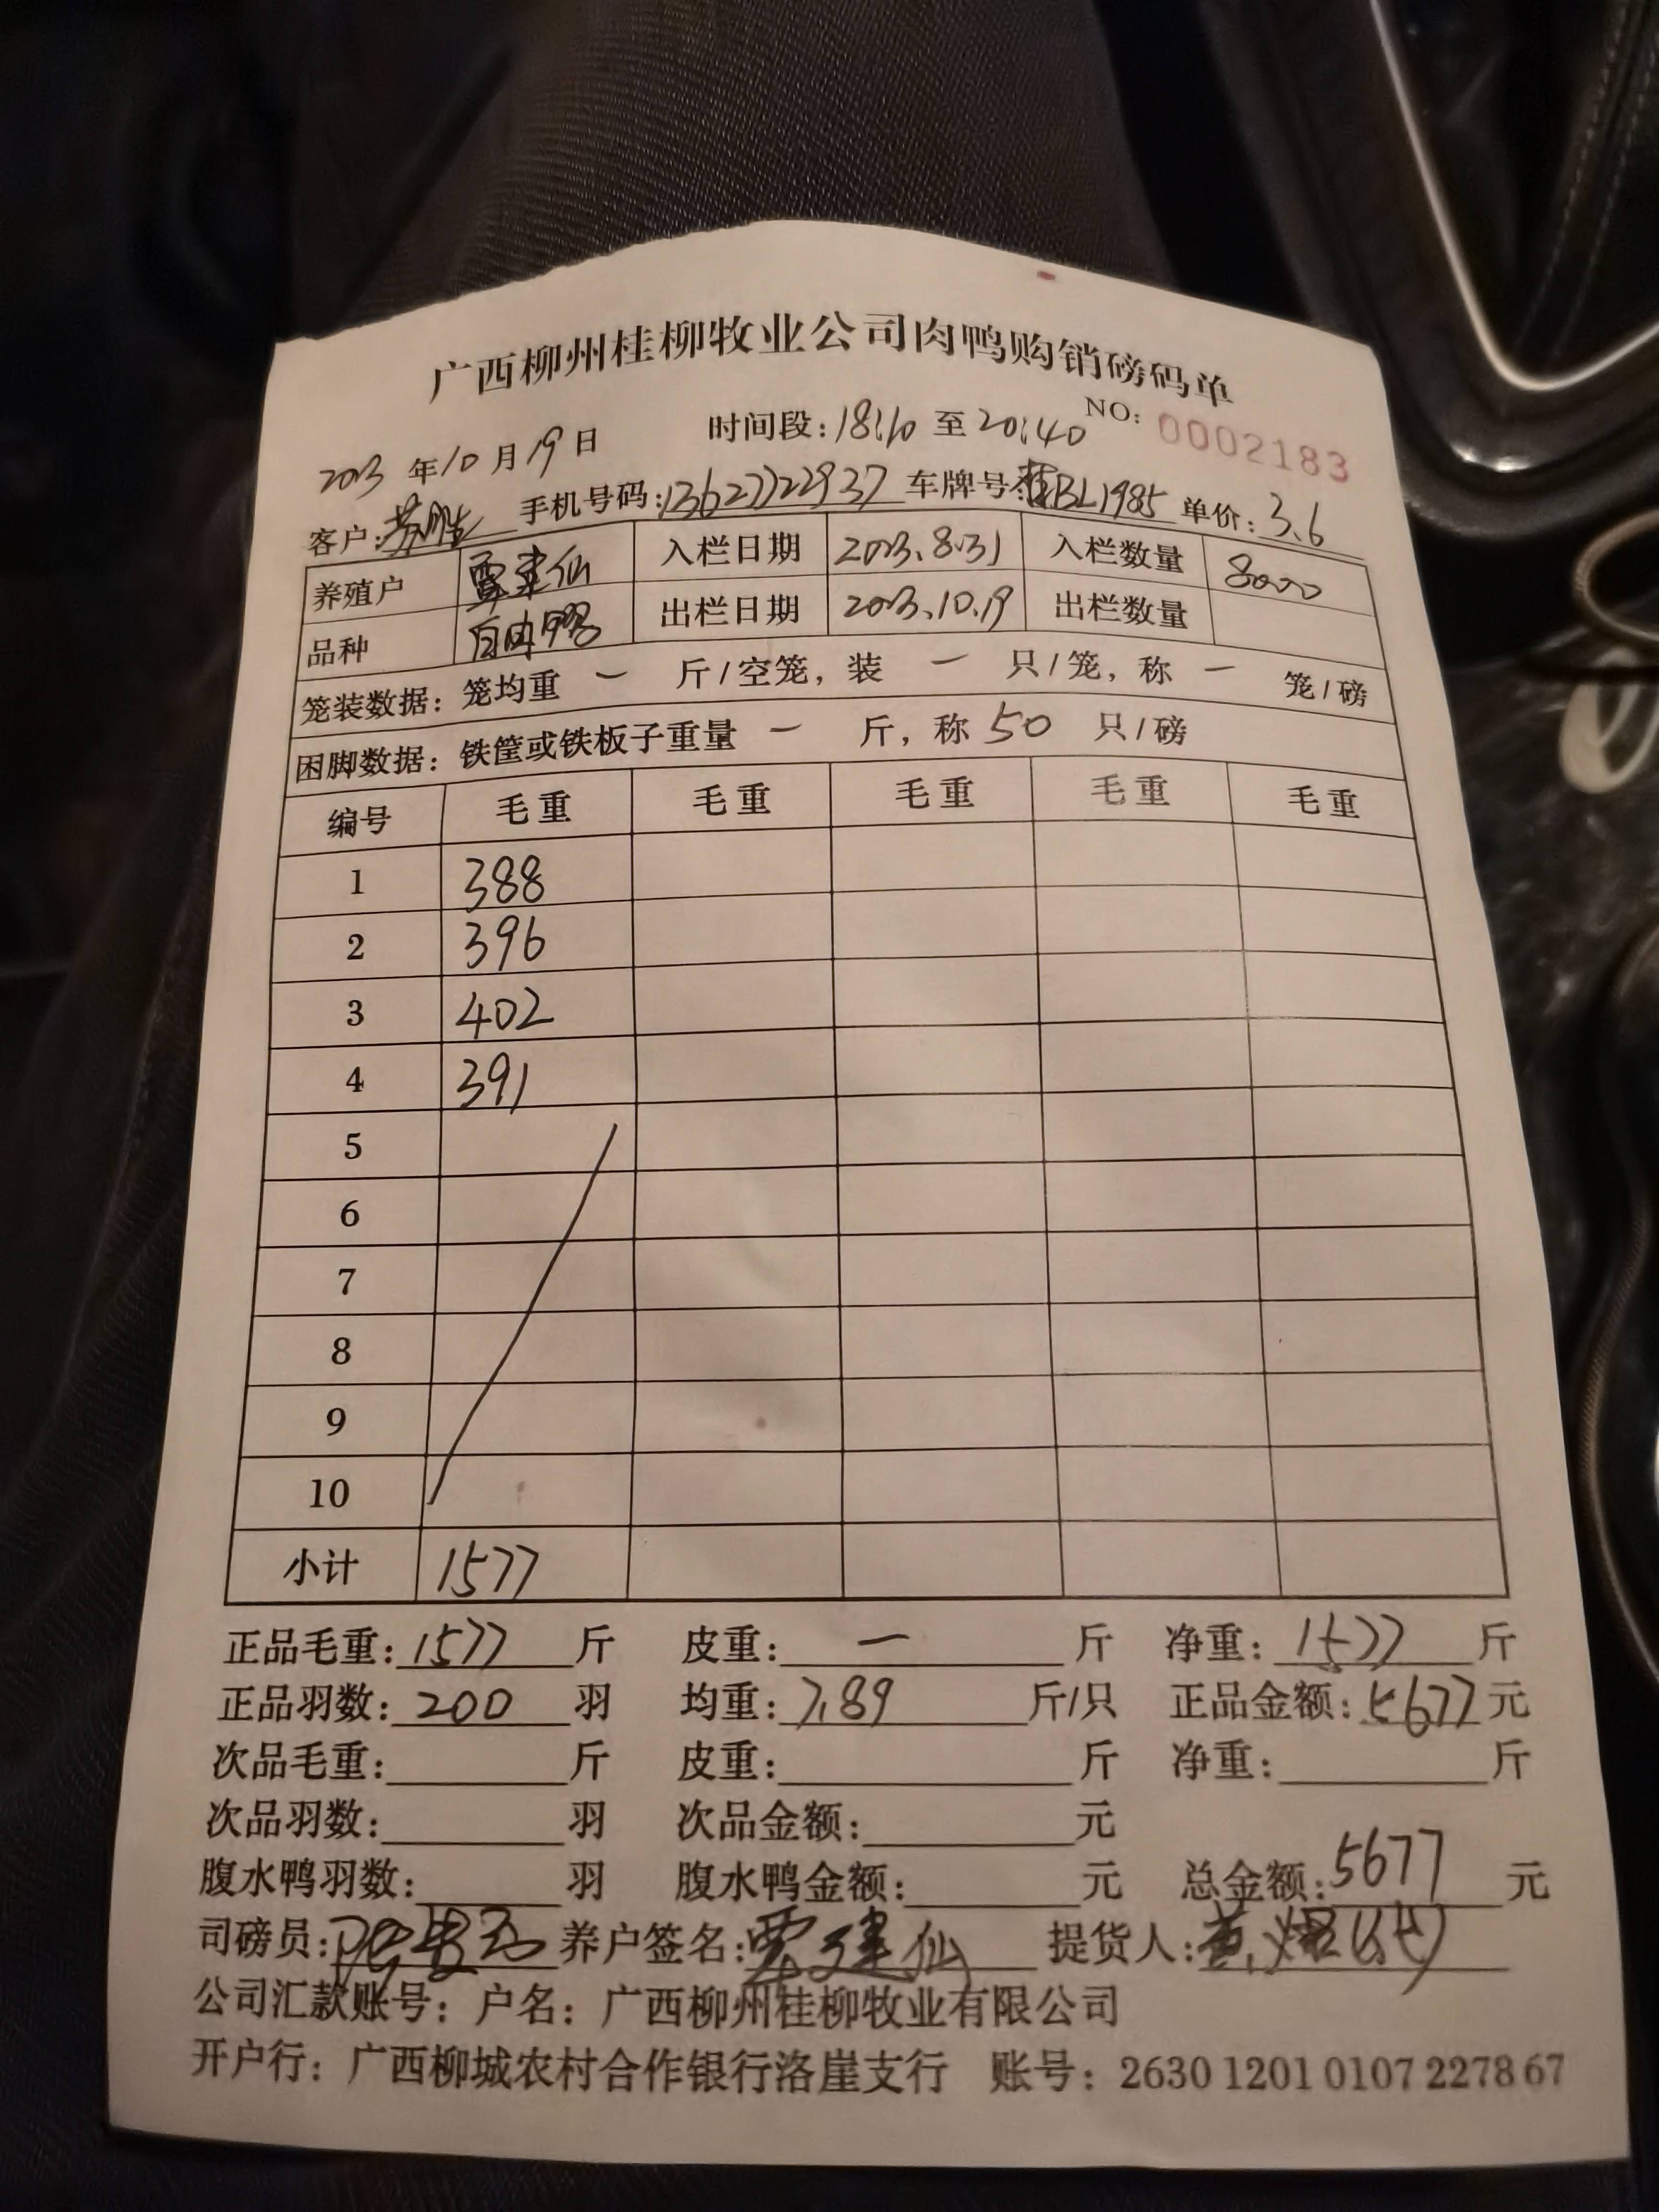 广西柳州桂柳牧业公司肉鸭购销磅码单
2023 年 10 月 19 日 时间段: 18:10 至 20:40 NO: 0002183
客户: 苏胜 手机号码: 13627722937 车牌号 桂BL1985 单价: 3.6
养殖户 覃建仙 入栏日期 2023.8.31 入栏数量 8000
品种 出栏日期 2023.10.19 出栏数量
笼装数据: 笼均重 一 斤/空笼, 装 一 只/笼, 称 一 笼/磅
困脚数据: 铁筐或铁板子重量 一 斤, 称 50 只/磅
编号 毛重 毛重 毛重 毛重 毛重
1 388
2 396
3 402
4 391
5
6
7
8
9
10
小计 1577
正品毛重: 1577 斤 皮重: 一 斤 净重: 1577 斤
正品羽数: 200 羽 均重: 7.89 斤/只 正品金额: 5677 元
次品毛重: 斤 皮重: 斤 净重: 斤
次品羽数: 羽 次品金额: 元
腹水鸭羽数: 羽 腹水鸭金额: 元 总金额: 5677 元
司磅员: 养户签名: 覃建仙 提货人:
公司汇款账号: 户名: 广西柳州桂柳牧业有限公司
开户行: 广西柳城农村合作银行洛崖支行 账号: 2630 1201 0107 2278 67